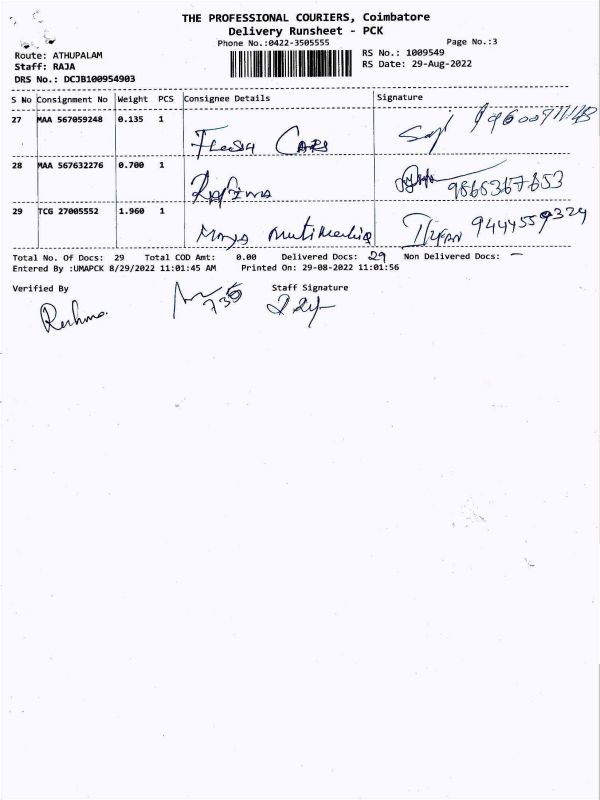 THE PROFESSIONAL COURIERS, Coimbatore
Delivery Runsheet - PCK
Phone No.:0422-3505555 Page No.:3
Route: ATHUPALAM RS No.: 1009549
Staff: RAJA RS Date: 29-Aug-2022
DRS No.: DCJB100954903
S No Consignment No Weight PCS Consignee Details Signature
27 MAA 567059248 0.135 1
Flash Cars
28 MAA 567632276 0.700 1
9865367653
29 TCG 27005552 1.960 1
Maya Multimedia 9444559324
Total No. Of Docs: 29 Total COD Amt: 0.00 Delivered Docs: 29 Non Delivered Docs: —
Entered By :UMAPCK 8/29/2022 11:01:45 AM Printed On: 29-08-2022 11:01:56
Verified By Staff Signature